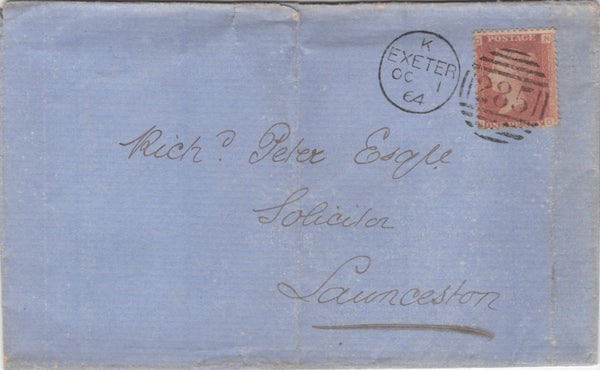 K
EXETER
OC 1
64
POSTAGE
285
Richd. Peter Esqre
Solicitor
Launceston